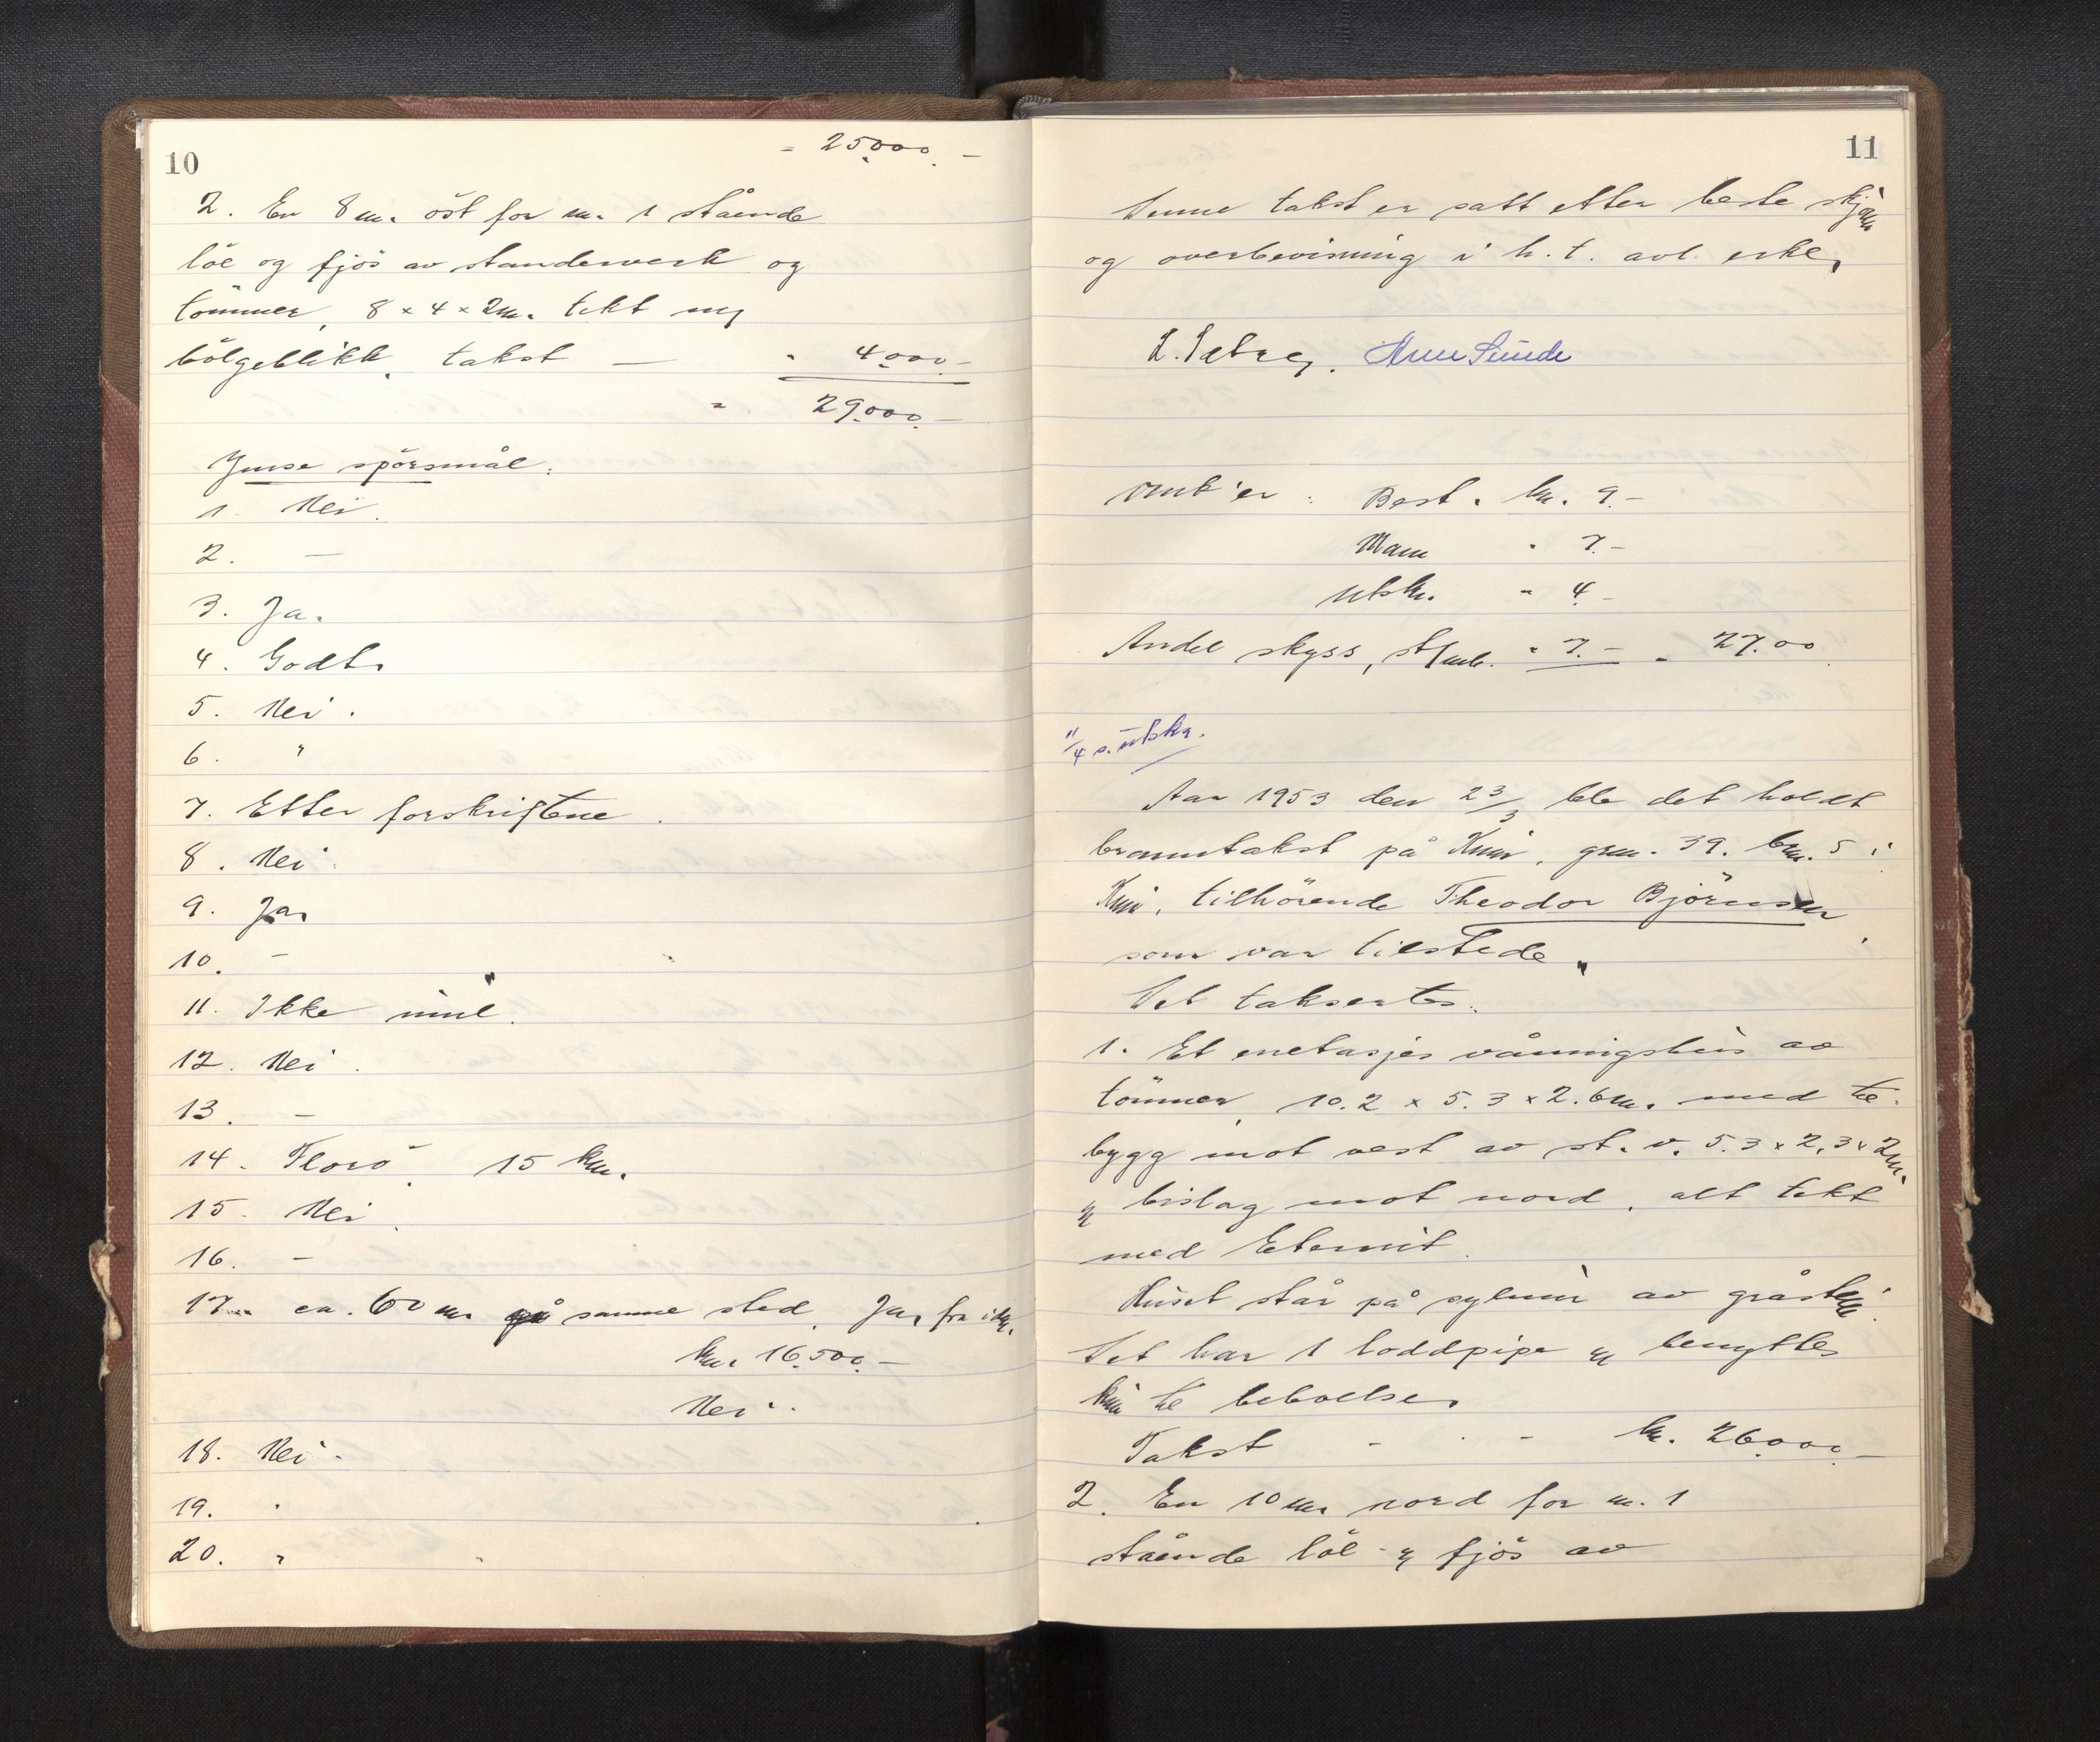 10
= 25.000.-
2. En 8 m. öst for nr. 1 stående
löe og fjös av standerverk og
tömmer, 8 x 4 x 2 m. tekt m/
bölgeblikk, takst — " 4.000.-
" 29.000.-
Ymse spörsmål:
1. Nei.
2. —
3. Ja.
4. Godt.
5. Nei.
6. "
7. Etter forskriftene.
8. Nei.
9. Ja,
10. -
11. Ikke innl.
12. Nei.
13. -
14. Florö, 15 km.
15. Nei.
16. -
17. ca. 60 m. på samme sted. Ja, fra
kr. 16.500.-
Nei.
18. Nei.
19. "
20. "
11
Denne takst er satt etter beste skjönn
og overbevisning i h.t. avl. ed.
Arne Sunde
Omk'er: Best. kr. 9.-
Mann " 7.-
Utskr. " 4.-
Andel skyss, " 7.- = 27.00
11/4 s. utskr.
Aar 1953 den 23/3 ble det holdt
branntakst på Kinn, grnr. 39, brnr. 5 i
Kinn, tilhörende Theodor Björnsen,
som var tilstede.
Det taksertes:
1. Et enetasjes våningshus av
tömmer, 10.2 x 5.3 x 2.6 m. med til-
bygg mot vest av st.v. 5.3 x 2,3 x 2 m.
og bislag mot nord, alt tekt
med Eternit.
Huset står på sylmur av gråstein.
Det har 1 loddpipe og benyttes
kun til beboelse,
Takst - - - kr. 26.000.-
2. En 10 m. nord for nr. 1
stående löe og fjös av